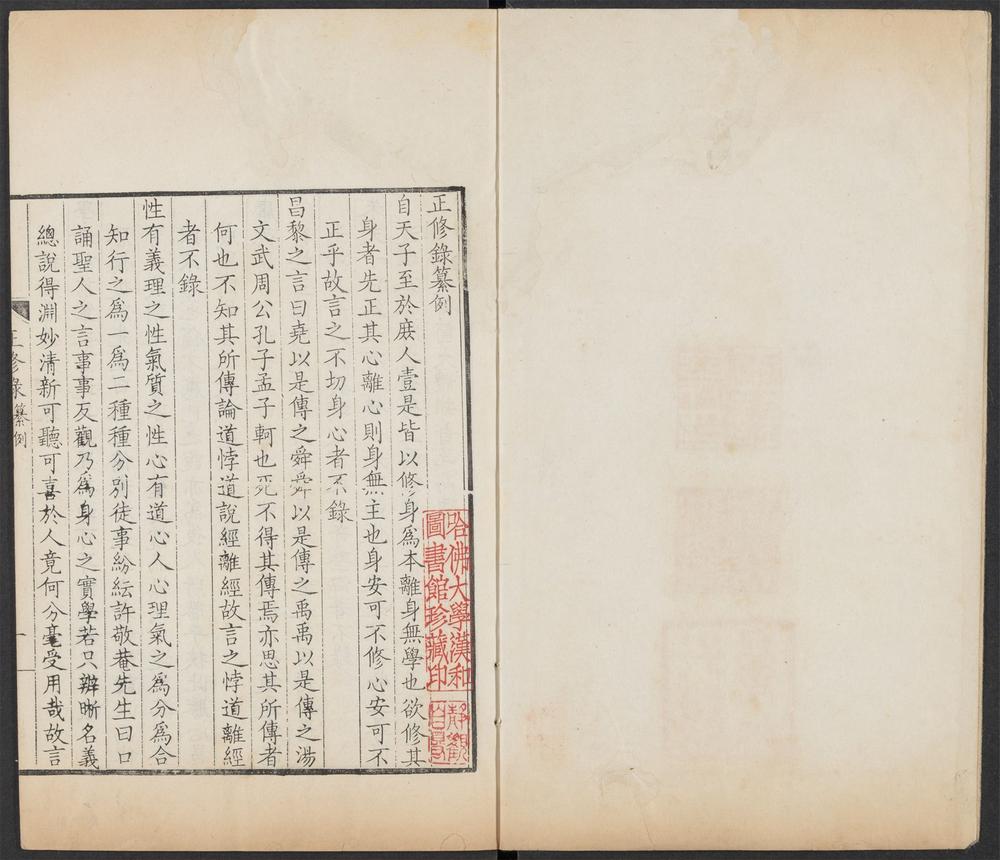 正修錄纂例
自天子至於庻人壹是皆以修身爲本離身無學也欲修其
身者先正其心離心則身無主也身安可不修心安可不
正乎故言之不切身心者不錄
昌黎之言曰堯以是傳之舜舜以是傳之禹禹以是傳之湯
文武周公孔子孟子軻也死不得其傳焉亦思其所傳者
何也不知其所傳論道悖道說經離經故言之悖道離經
者不錄
性有義理之性氣質之性心有道心人心理氣之爲分爲合
知行之爲一爲二種種分別徒事紛紜許敬菴先生曰口
誦聖人之言事事反觀乃爲身心之實學若只辨晰名義
總說得淵妙清新可聽可喜於人竟何分毫受用哉故言
正修錄纂例
一
哈佛大學漢和
圖書館珍藏印
靜觀